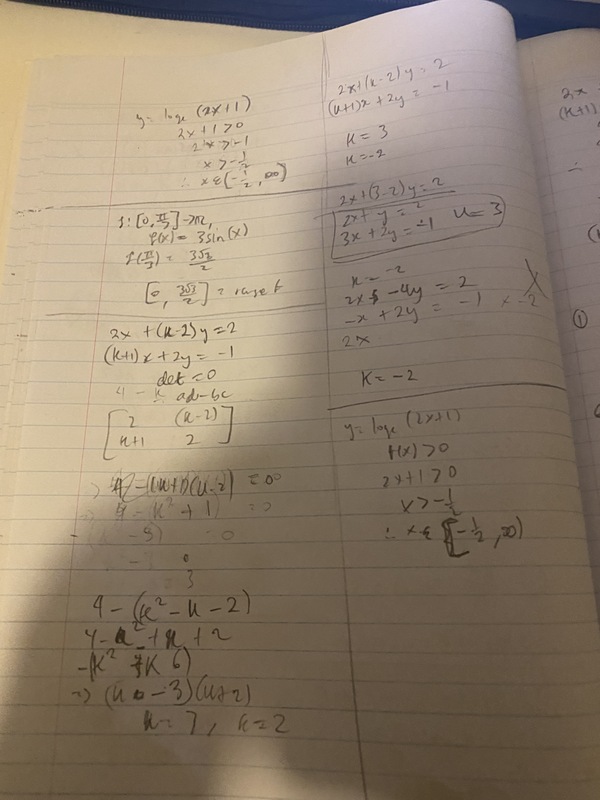 y = logₑ (2x+1)
2x+1 > 0
2x > -1
x > -1/2
∴ x ∈ [-1/2, ∞)
f: [0, π/3] → R,
f(x) = 3sin(x)
f(π/3) = 3√3/2
[0, 3√3/2] = range f
2x + (k-2)y = 2
(k+1)x + 2y = -1
det = 0
ad-bc
[2 (k-2)
k+1 2]
4 - (k² - k - 2)
4 - k² + k + 2
=> (k - 3)(k+2)
k = 3, k = 2
2x + (k-2)y = 2
(k+1)x + 2y = -1
k = 3
k = -2
2x + (3-2)y = 2
2x + y = 2
3x + 2y = -1 k = 3
k = -2
2x - 4y = 2
-x + 2y = -1 x -2
2x
k = -2
y = logₑ (2x+1)
f(x) > 0
2x+1 > 0
x > -1/2
∴ x ∈ [-1/2, ∞)
2x
(k+1)
∴
①